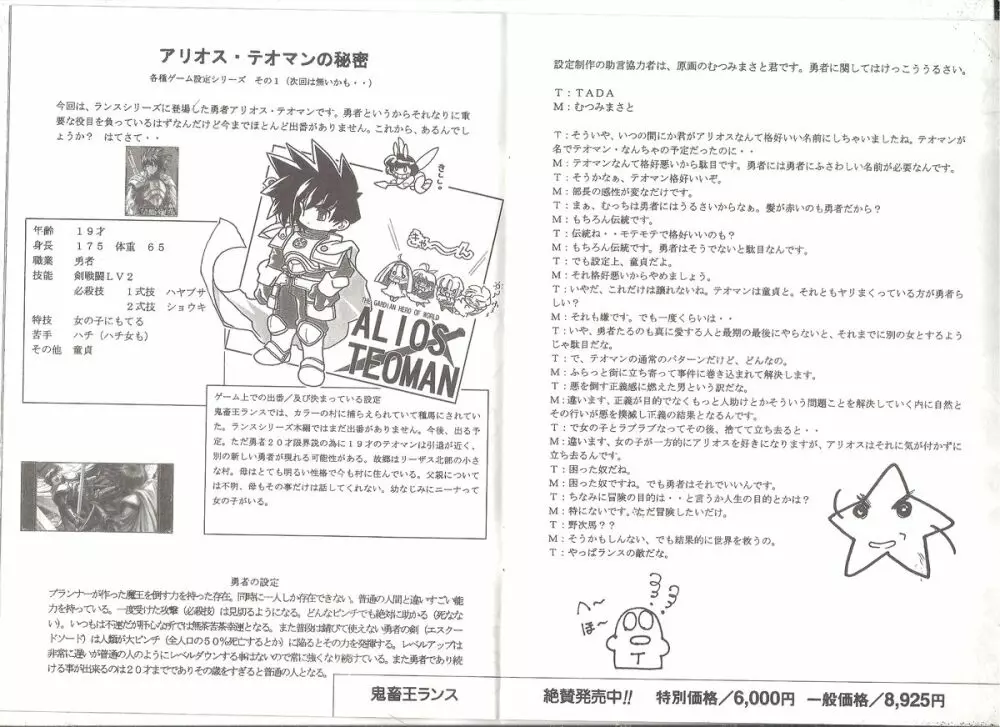 アリオス・テオマンの秘密
各種ゲーム設定シリーズ その１（次回は無いかも・・）
今回は、ランスシリーズに登場した勇者アリオス・テオマンです。勇者というからそれなりに重
要な役目を負っているはずなんだけど今までほとんど出番がありません。これから、あるんでし
ょうか？ はてさて・・
きしし
きゃ～～
年齢 １９才
身長 １７５ 体重 ６５
職業 勇者
技能 剣戦闘ＬＶ２
必殺技 １式技 ハヤブサ
２式技 ショウキ
特技 女の子にもてる
苦手 ハチ（ハチ女も）
その他 童貞
THE GARDIAN HERO OF WORLD
ALIOS
TEOMAN
ゲーム上での出番／及び決まっている設定
鬼畜王ランスでは、カラーの村に捕らえられていて種馬にされてい
た。ランスシリーズ本編ではまだ出番がありません。今後、出る予
定。ただ勇者２０才限界説の為に１９才のテオマンは引退が近く、
別の新しい勇者が現れる可能性がある。故郷はリーザス北部の小さ
な村。母はとても明るい性格で今も村に住んでいる。父親について
は不明、母もその事だけは話してくれない。幼なじみにニーナって
女の子がいる。
勇者の設定
プランナーが作った魔王を倒す力を持った存在。同時に一人しか存在できない。普通の人間と違いすごい能
力を持っている。一度受けた攻撃（必殺技）は見切るようになる。どんなピンチでも絶対に助かる（死なな
い）。いつもは不運だが肝心な所では無茶苦茶幸運となる。また普段は錆びて使えない勇者の剣（エスクー
ドソード）は人類が大ピンチ（全人口の５０％死亡するとか）に陥るとその力を発揮する。レベルアップは
非常に遅いが普通の人のようにレベルダウンする事はないので常に強くなり続けている。また勇者であり続
ける事が出来るのは２０才まででありその歳をすぎると普通の人となる。
設定制作の助言協力者は、原画のむつみまさと君です。勇者に関してはけっこううるさい。
Ｔ：ＴＡＤＡ
Ｍ：むつみまさと
Ｔ：そういや、いつの間にか君がアリオスなんて格好いい名前にしちゃいましたね。テオマンが
名でテオマン・なんちゃの予定だったのに・・
Ｍ：テオマンなんて格好悪いから駄目です。勇者には勇者にふさわしい名前が必要なんです。
Ｔ：そうかなぁ、テオマン格好いいぞ。
Ｍ：部長の感性が変なだけです。
Ｔ：まぁ、むっちは勇者にはうるさいからなぁ。髪が赤いのも勇者だから？
Ｍ：もちろん伝統です。
Ｔ：伝統ね・・モテモテで格好いいのも？
Ｍ：もちろん伝統です。勇者はそうでないと駄目なんです。
Ｔ：でも設定上、童貞だよ。
Ｍ：それ格好悪いからやめましょう。
Ｔ：いやだ、これだけは譲れないね。テオマンは童貞と。それともヤリまくっている方が勇者ら
しい？
Ｍ：それも嫌です。でも一度くらいは・・
Ｔ：いや、勇者たるのも真に愛する人と最期の最後にやらないと、それまでに別の女とするよう
じゃ駄目だな。
Ｔ：で、テオマンの通常のパターンだけど、どんなの。
Ｍ：ふらっと街に立ち寄って事件に巻き込まれて解決します。
Ｔ：悪を倒す正義感に燃えた男という訳だな。
Ｍ：違います、正義が目的でなくもっと人助けとかそういう問題ことを解決していく内に自然と
その行いが悪を撲滅し正義の結果となるんです。
Ｔ：で女の子とラブラブなってその後、捨てて立ち去ると・・
Ｍ：違います、女の子が一方的にアリオスを好きになりますが、アリオスはそれに気が付かずに
立ち去るんです。
Ｔ：困った奴だね。
Ｍ：困った奴ですね。でも勇者はそれでいいんです。
Ｔ：ちなみに冒険の目的は・・と言うか人生の目的とかは？
Ｍ：特にないです。ただ冒険したいだけ。
Ｔ：野次馬？？
Ｍ：そうかもしんない、でも結果的に世界を救うの。
Ｔ：やっぱランスの敵だな。
へ～
ほ～
T
鬼畜王ランス 絶賛発売中!! 特別価格／6,000円 一般価格／8,925円